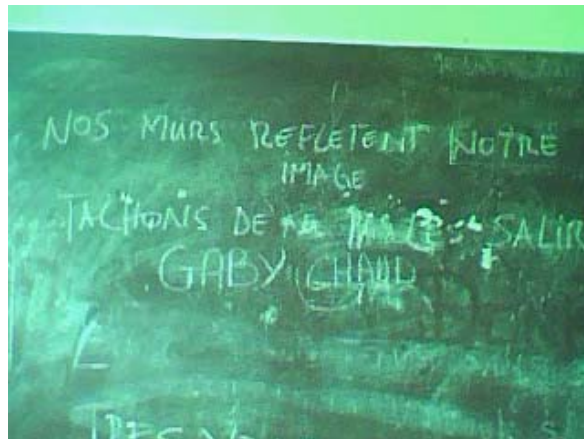 NOS MURS REFLETENT NOTRE
IMAGE
TACHONS DE SALIR
GABY CHAUD